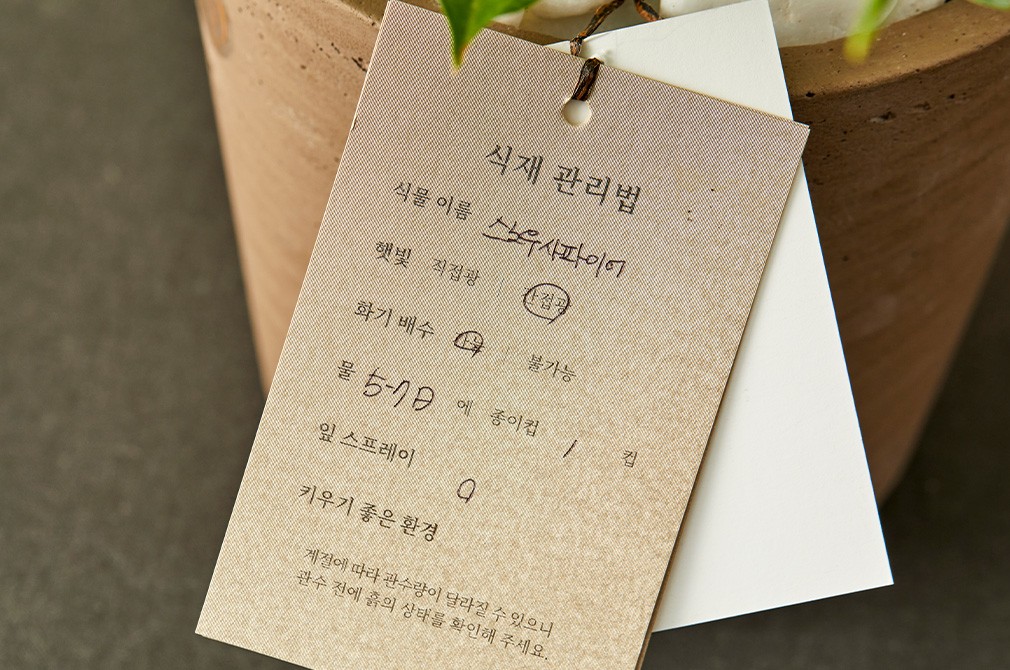 식재 관리법
식물 이름 스노우사파이어
햇빛 직접광 | 반접광
화기 배수 가능 | 불가능
물 5-7일 에 종이컵 1 컵
잎 스프레이 O
키우기 좋은 환경
계절에 따라 관수량이 달라질 수 있으니
관수 전에 흙의 상태를 확인해 주세요.